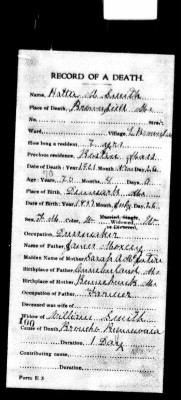 RECORD OF A DEATH.
Name, Hattie A Smith
Place of Death, Brownfield Me.
No. Street
Ward, Village,
How long a resident, 2 yrs
Previous residence, Boston Mass
Date of Death: Year, 1921 Month, Nov Day, 26
Age: Years, 70 Months, 4 Days, 0
Place of Birth, Denmark Me.
Date of Birth: Year, Month, July Day, 26
Sex, F. Color, W. Married, Single, Widowed, or Divorced, W.
Occupation, Dressmaker
Name of Father, James
Maiden Name of Mother, Sarah A
Birthplace of Father, Cumberland Me
Birthplace of Mother, Kennebunk Me
Occupation of Father, Farmer
Deceased was wife of
Widow of William Smith
Cause of Death, Broncho Pneumonia
Duration, 1 Day
Contributing cause,
Duration,
Form E 3